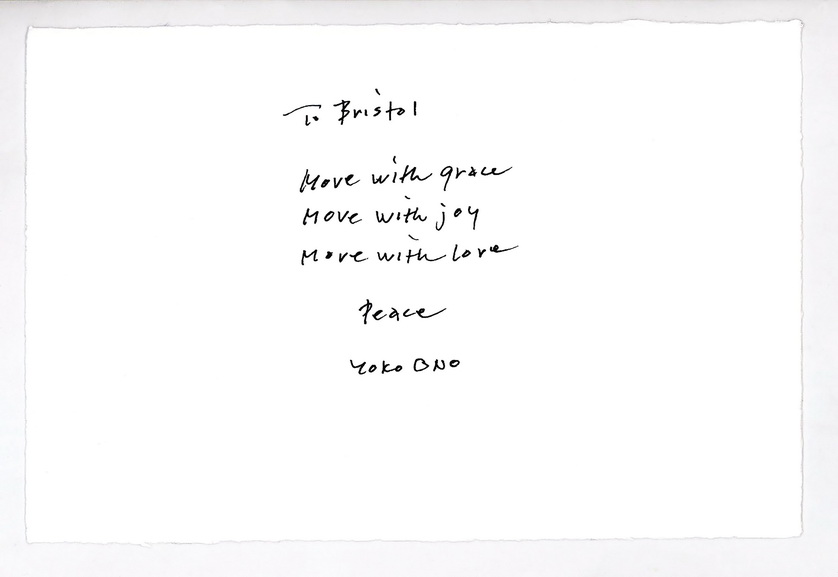 To Bristol
Move with grace
Move with joy
Move with love
Peace
Yoko ONO